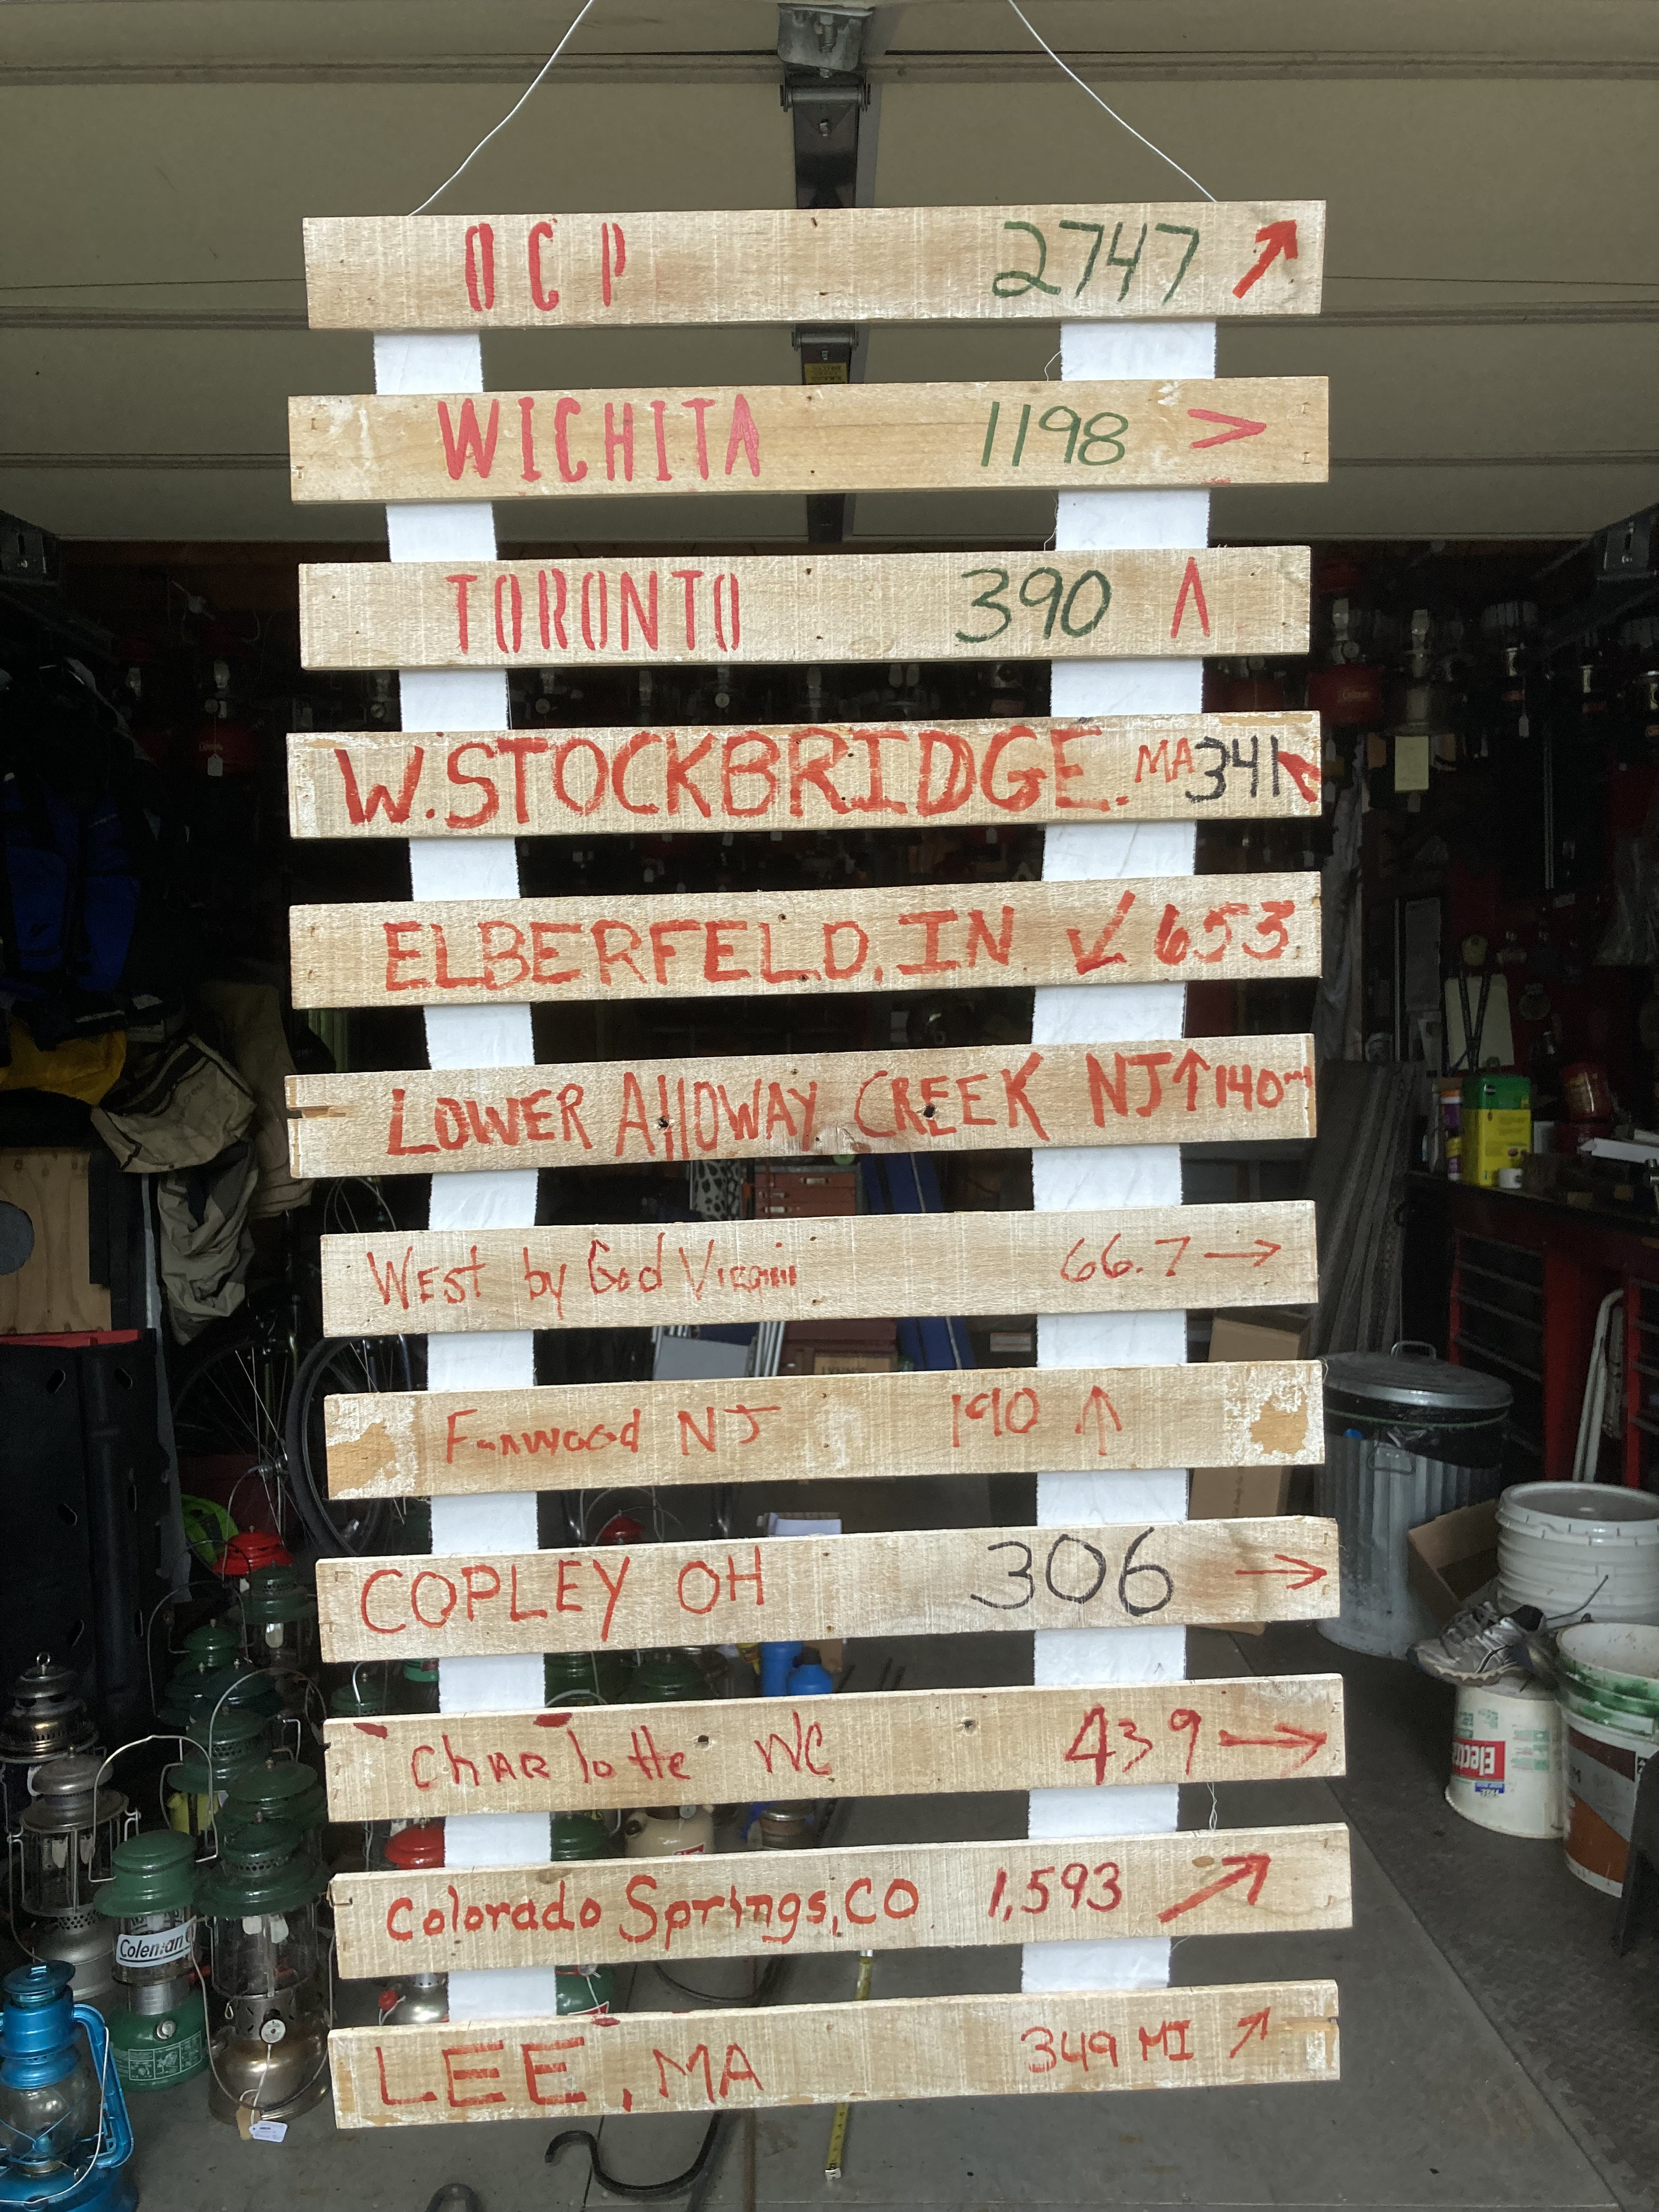 OCP 2747 ↗
WICHITA 1198 >
TORONTO 390 Λ
W. STOCKBRIDGE. MA 341 ↖
ELBERFELD, IN ↙ 653
LOWER AllOWAY CREEK NJ ↑ 140 mi
WEST by God Virginii 66.7 →
Fanwood NJ 190 ↑
COPLEY OH 306 →
ChARlotte NC 439 →
Colorado Springs, CO 1,593 ↗
LEE, MA 349 MI ↗
Coleman
Electro